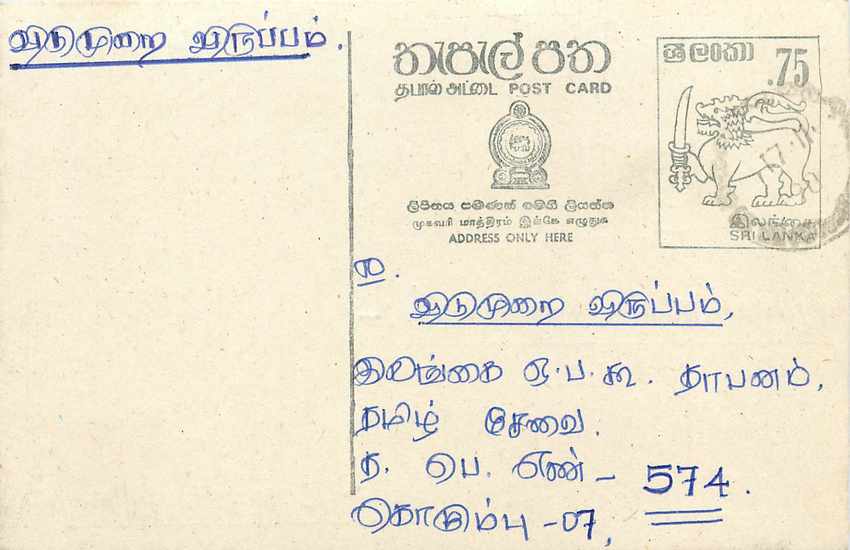 விடுமுறை விருப்பம்.
තැපැල් පත
தபால் அட்டை POST CARD
ලිපිනය පමණක් මෙහි ලියන්න
முகவரி மாத்திரம் இங்கே எழுதுக
ADDRESS ONLY HERE
ශ්‍රී ලංකා
.75
இலங்கை
SRI LANKA
விடுமுறை விருப்பம்,
இலங்கை ஒ.ப.கூ. தாபனம்,
தமிழ் சேவை.
த. பெ. எண் - 574.
கொழும்பு -07,